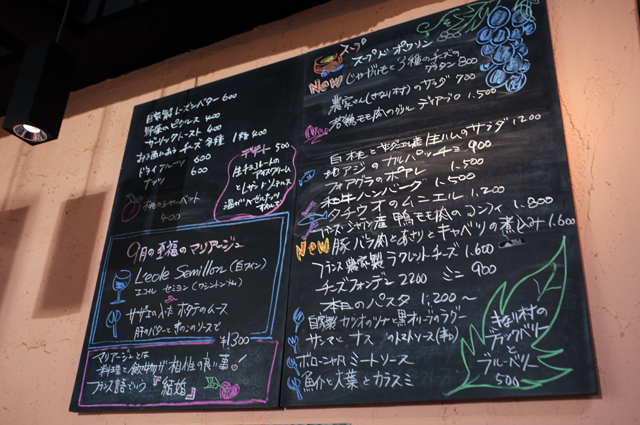 自家製レーズンバター 600
野菜のピクルス 400
ガーリックトースト 400
チーズ各種 1種 400
ドライフルーツ 600
ナッツ 600
シャーベット
400
デザート 500
生チョコレートの
アイスクリーム
9月の至福のマリアージュ
L'ecole Semillon (白ワイン)
エコル セミヨン (ワシントン州)
&
サザエの入った ホタテのムース
肝のバターと
¥1300
マリアージュとは
料理と飲物が相性の良い事!
フランス語でいう『結婚』
スープ
スープド ポワソン 800
NEW じゃがいもと3種のチーズの
グラタン 800
農家さん(きなり村)のサラダ 700
若鶏モモ肉のグリル ディアブロ 1.500
New
白桃と 生ハムのサラダ 1200
地アジのカルパッチョ 900
フォアグラのポアレ 1.500
和牛ハンバーグ 1.500
タチウオのムニエル 1.200
フランス・シャラン産 鴨モモ肉のコンフィ 1.800
NEW 豚バラ肉とあさりとキャベツの煮込み 1.600
フランス農家製ラクレットチーズ 1.600
チーズフォンデュ 2200 ミニ 900
本日のパスタ 1,200~
自家製カツオのツナと黒オリーブのラグー
サンマとナスのトマトソース
ボローニャ風ミートソース
魚介と大葉とカラスミ
きなり村の
ブラックベリー
と
ブルーベリー
500